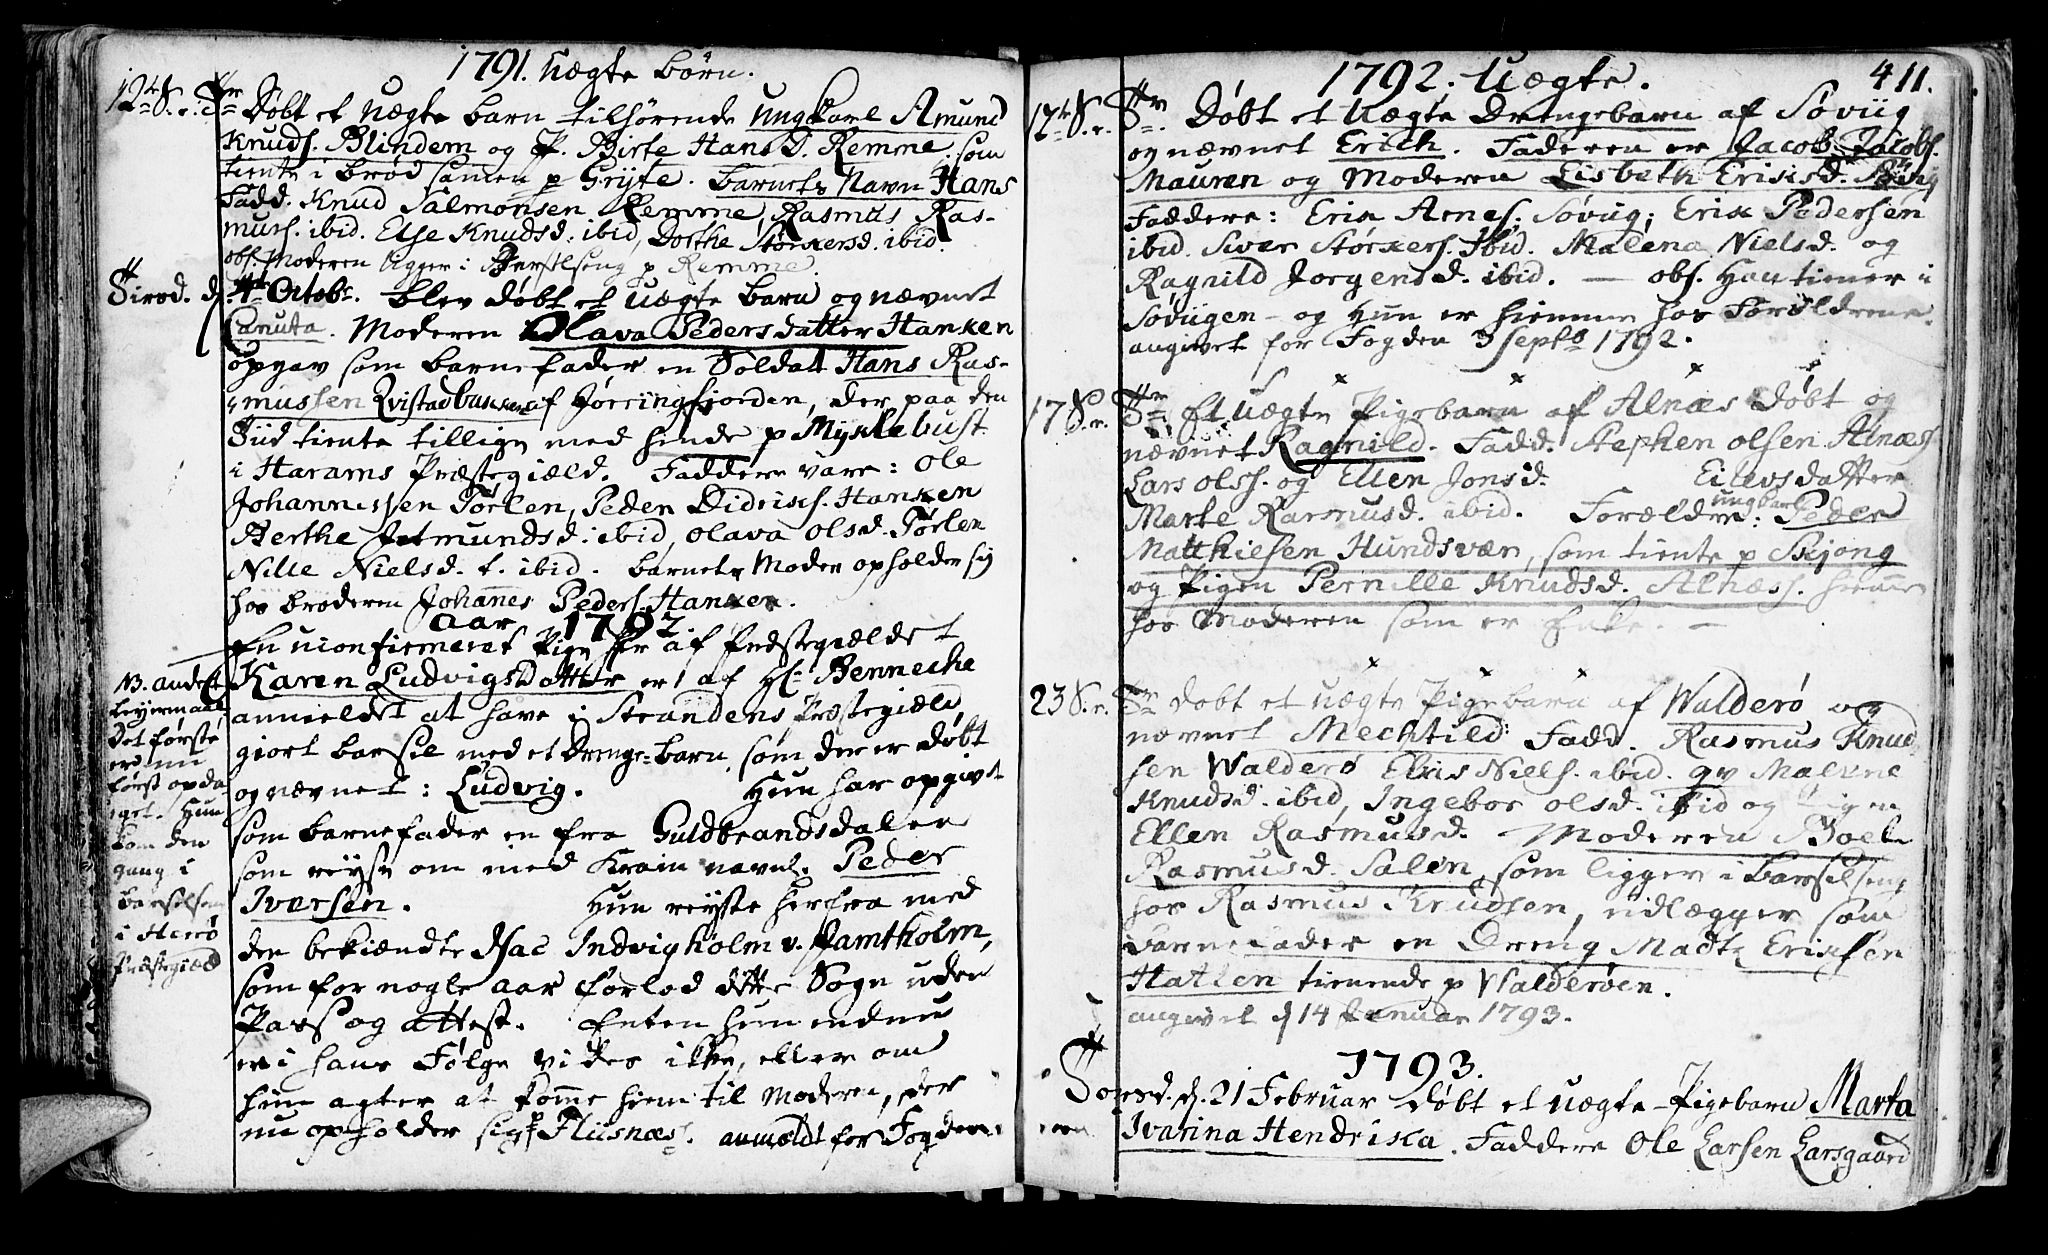 1791. Uægte Børn.
12te S. e. Tr. Døbt et uægte barn tilhørende Ungkarl Amund
Knuds. Blindem og P. Birte Hansd. Remme, som
tiente i brød samen p Gryte. barnets Navn Hans
Fadd. Knud Salmonsen Remme, Rasmus Ras-
muss. ibid. Else Knudsd. ibid, Dorthe Størkersd. ibid.
obs. Moderen ligger i Barselseng p Remme.
d. 4de Octobr. blev døbt et uægte barn og nævnet
Canuta. Moderen Olava Pedersdatter Hanken
opgav som barnefader en Soldat Hans Ras-
mussen Qvistadbakken af Jørringfjorden, der paa den
Tiid tiente tillige med hende p Myklebust
i Harams Præstegield. Faddere vare: Ole
Johannessen Tørlen, Peder Didrixs. Hanken
Berthe Jetmundsd. ibid, Olava Olsd. Tørlen
Nille Nielsd. t. ibid. barnets Moder opholder sig
hos broderen Johannes Peders. Hanken.
Aar 1792
En uconfirmeret Pige her af Præstegieldet
Karen Ludvigsdatter er af Hr. Benneche
anmeldet at have i Strandens Præstegield
giort barsel med et Drenge-barn, som der er døbt
og nævnet: Ludvig. Hun har opgivet
som barnefader en fra Guldbrandsdalen
som reyste om med Kram navnl. Peder
Iversen. Hun reyste herfra med
den bekiændte Isac Indvigholm v. Jamtholm,
som for nogle aar forlod dette Sogn uden
Pass og attest. Enten hun endnu
er i hans Følge vides ikke, eller om
hun agter at komme hiem til Moderen, der
nu opholder sig p Fliisnæs. anmeldt for Fogden.
NB. andet
Leyermaal
Det første
er nu
først opda-
get. Hun
kom den
gang i
barselseng
i Herø
Præstegield
1792. Uægte. 411.
12te S. e. Tr. Døbt et Uægte Drengebarn af Søviig
og nævnet Erich. Faderen er Jacob Jacobs.
Mauren og Moderen Lisbeth Eriksd. Søvig
Faddere: Erik Arnes. Søvug; Erik Pedersen
ibid. Siver Størkers. Ibid. Malena Nielsd. og
Ragnild Jorgensd. ibid. — obs. Han tiener i
Søviigen - og Hun er hiemme hos Forældrene.
angivet for Fogden 3 Septb 1792.
17 S. e. Tr. Et uægte Pigebarn af Alnæs døbt og
nævnet Ragnild. Fadd. Stephen Olsen Alnæs
Lars Olss. og Ellen Jonsd. Eilevsdatter
Marte Rasmusd. ibid. Forældre: ungkarl Peder
Matthiesen Hundsvær, som tiente p Skjong
og Pigen Pernille Knudsd. Alnæss. hiemme
hos Moderen som er Enke. —
23 S. e. Tr. døbt et uægte Pigebarn af Walderø og
nævnet Mechtild. Fadd. Rasmus Knud-
sen Walderø Niels. ibid. qv Malene
Knudsd. ibid, Ingebor Olsd. ibid og Pigen
Ellen Rasmusd. Moderen Boel
Rasmusd. Salen, som ligger i barselseng
hos Rasmus Knudsen, udlægger som
barnefader en Dreng Madtz Eriksen
Hatlen tienende p Walderøen.
angivet d 14 Januar 1793.
1793.
Torsd. d. 21 Februar døbt et uægte Pigebarn Marta
Ivarina Hendrika. Faddere Ole Larsen Larsgaard